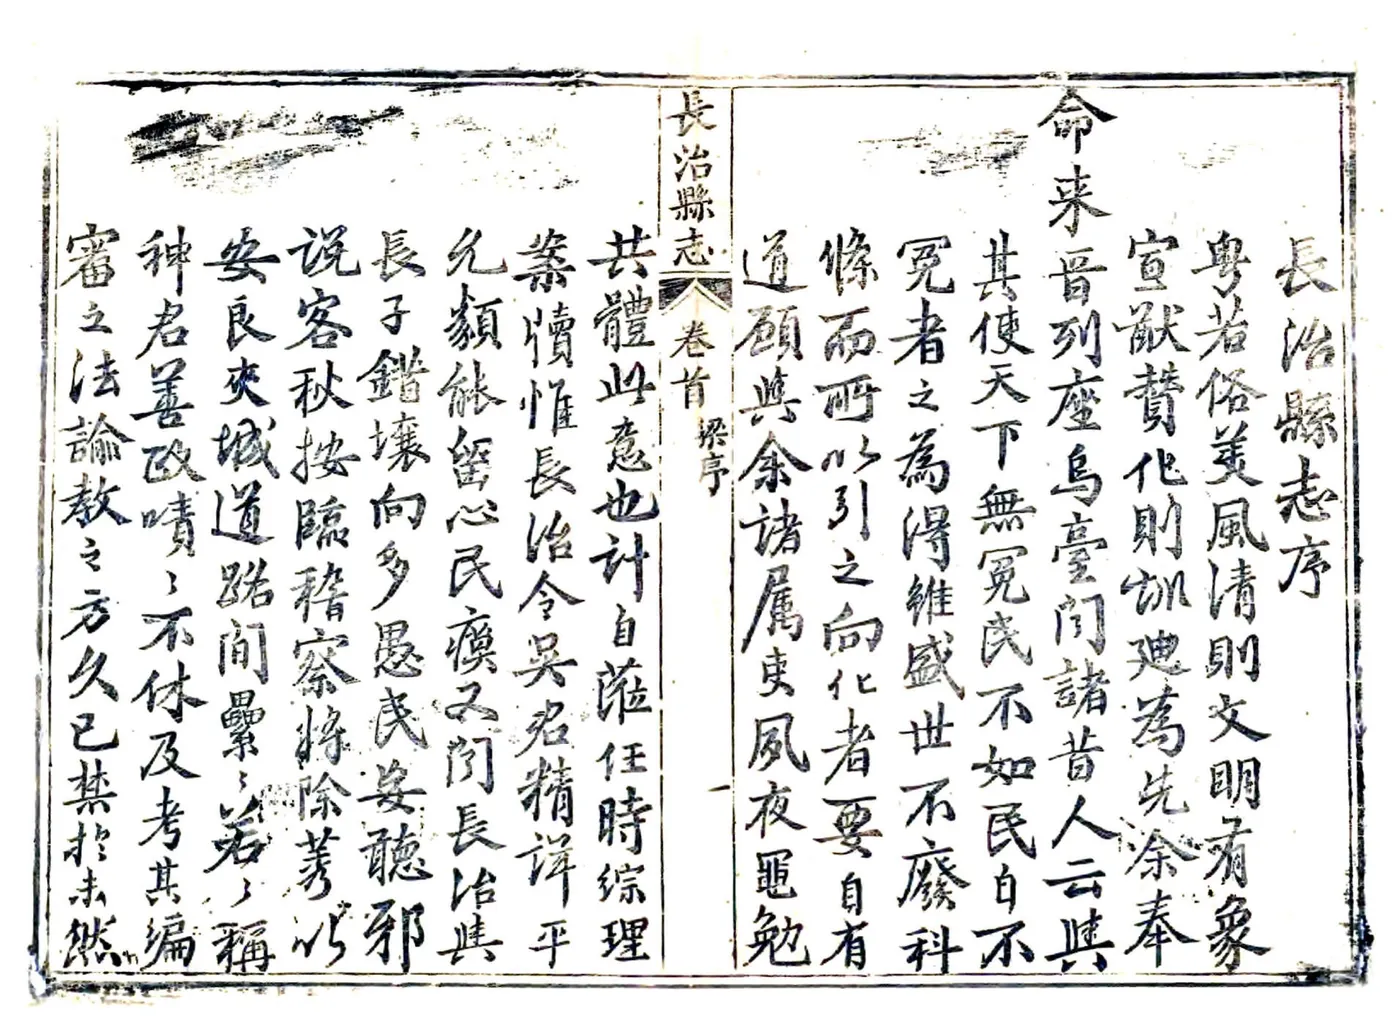 長治縣志序
粤若俗美風清則文明有象
宣猷贊化則訓廸為先余奉
命来晋列座烏臺聞諸昔人云與
其使天下無冤民不如民自不
冤者之為得雖盛世不廢科
條而所以引之向化者要自有
道願與余諸属吏夙夜黽勉
長治縣志 卷首 梁序 一
共體此意也計自蒞任時綜理
案牘惟長治令吳君精詳平
允纇能留心民瘼又聞長治與
長子錯壤向多愚民妄聽邪
說客秋按臨稽察將除莠以
安良夾城道路間纍〻若〻稱
神君善政嘖〻不休及考其編
審之法諭教之方久已禁於未然